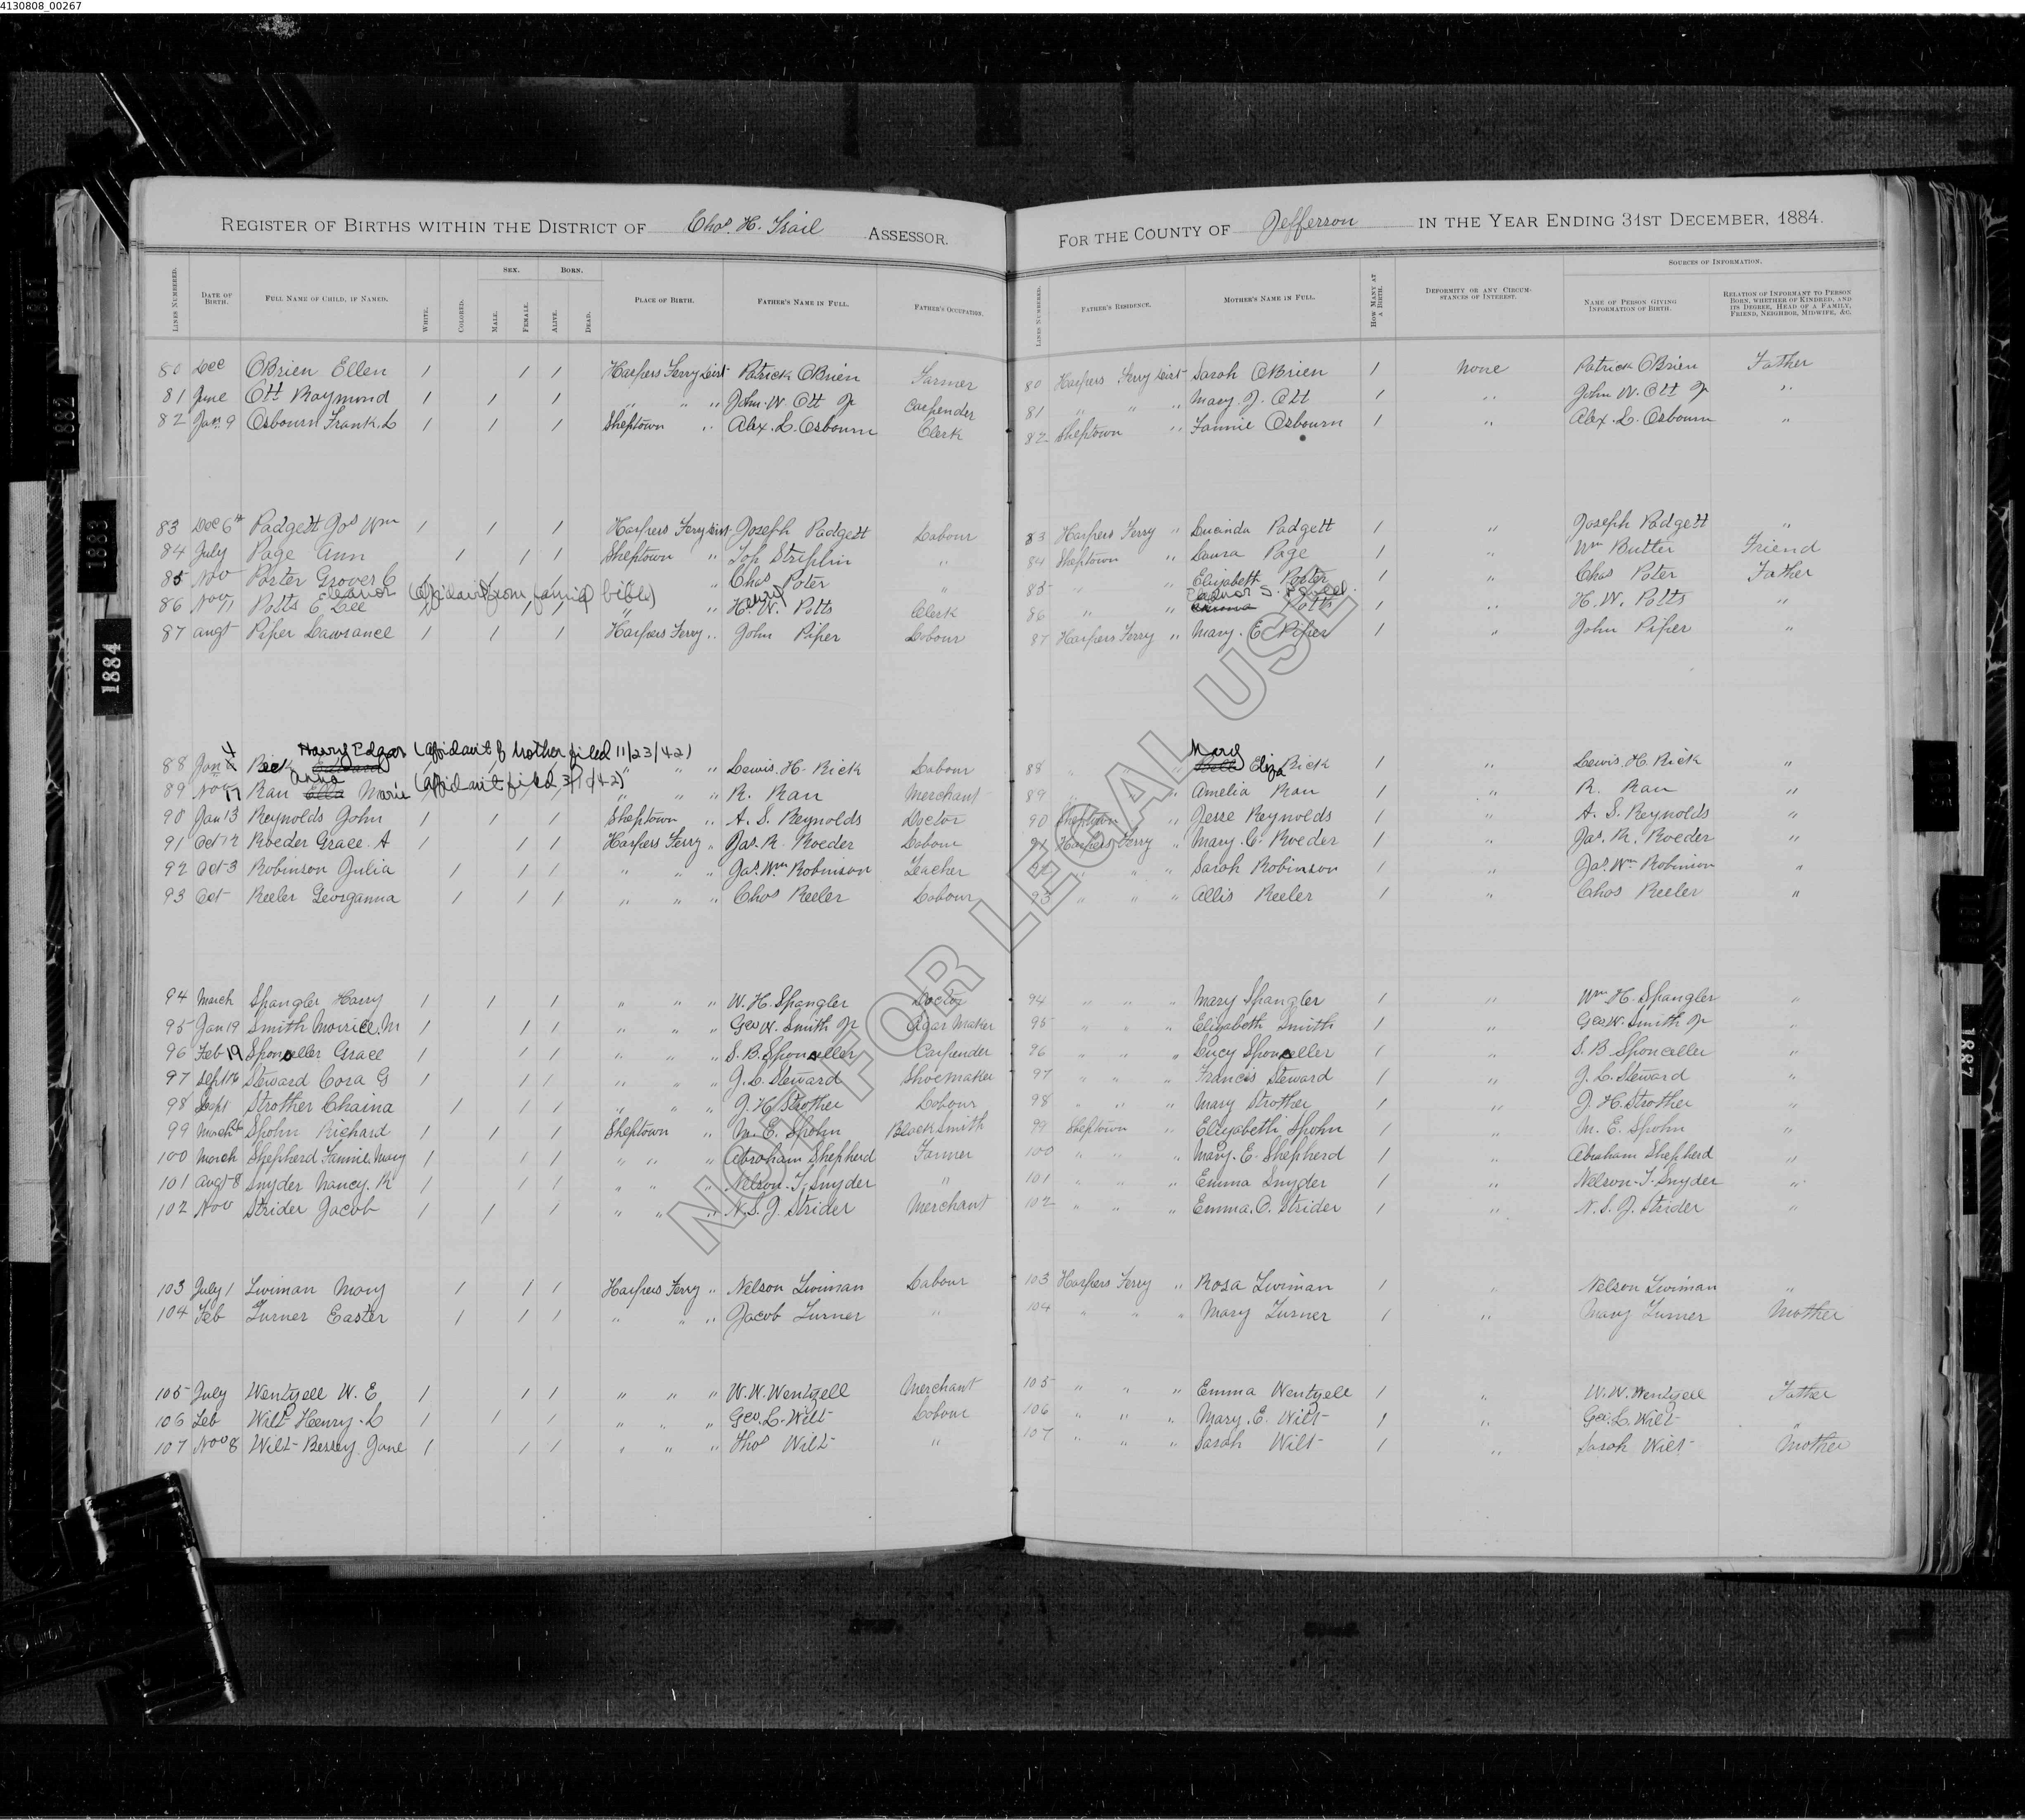 4130808_00267
REGISTER OF BIRTHS WITHIN THE DISTRICT OF Chas. H. Trail ASSESSOR. FOR THE COUNTY OF Jefferson IN THE YEAR ENDING 31ST DECEMBER, 1884.
LINES NUMBERED. DATE OF BIRTH. FULL NAME OF CHILD, IF NAMED. WHITE. COLORED. SEX. MALE. FEMALE. BORN. ALIVE. DEAD. PLACE OF BIRTH. FATHER'S NAME IN FULL. FATHER'S OCCUPATION. LINES NUMBERED. FATHER'S RESIDENCE. MOTHER'S NAME IN FULL. HOW MANY AT A BIRTH. DEFORMITY OR ANY CIRCUMSTANCES OF INTEREST. SOURCES OF INFORMATION. NAME OF PERSON GIVING INFORMATION OF BIRTH. RELATION OF INFORMANT TO PERSON BORN, WHETHER OF KINDRED, AND ITS DEGREE, HEAD OF A FAMILY, FRIEND, NEIGHBOR, MIDWIFE, &C.
80 Dec OBrien Ellen 1 1 1 Harpers Ferry Dist Patrick OBrien Farmer 80 Harpers Ferry Dist Sarah OBrien 1 None Patrick OBrien Father
81 June Ott Raymond 1 1 1 " " " John W. Ott Jr Carpender 81 " " " Mary J. Ott 1 " John W. Ott Jr "
82 Jan 9 Osbourn Frank. L 1 1 1 Sheptown " Alex. L. Osbourn Clerk 82 Sheptown " Fannie Osbourn 1 " Alex. L. Osbourn "
83 Dec 6th Padgett Jos Wm 1 1 1 Harpers Ferry Dist Joseph Padgett Labour 83 Harpers Ferry " Lucinda Padgett 1 " Joseph Padgett "
84 July Page Ann 1 1 1 Sheptown " Striplin " 84 Sheptown " Laura Page 1 " Wm Butler Friend
85 Nov Poster Grover C 1 1 " Chas Poter " 85 " " Elizabeth Poster 1 " Chas Poter Father
86 Nov 1 Potts Eleanor Lee (affidavit from family bible) 1 1 " " Henry W. Potts Clerk 86 " " Eleanor S. Potts 1 " H. W. Potts "
87 Augt Piper Lawrance 1 1 1 Harpers Ferry " John Piper Labour 87 Harpers Ferry " Mary. E. Piper 1 " John Piper "
88 Jan 4 Rick Harry Edgar (affidavit of brother filed 11/23/42) " " " Lewis. H. Rick Labour 88 " " " Mary Eliza Rick 1 Lewis. H. Rick "
89 Nov 17 Rau Anna Ella Marie (affidavit filed 3/1/42) " " " R. Rau Merchant 89 " " " Amelia Rau 1 " R. Rau "
90 Jan 13 Reynolds John 1 1 1 Sheptown " A. S. Reynolds Doctor 90 Sheptown " Jesse Reynolds 1 " A. S. Reynolds "
91 Oct 12 Roeder Grace. A 1 1 1 Harpers Ferry " Jas. R. Roeder Labour 91 Harpers Ferry " Mary. C. Roeder 1 " Jas. R. Roeder "
92 Oct 3 Robinson Julia 1 1 1 " " " Jas. Wm Robinson Teacher " " " Sarah Robinson 1 " Jas. Wm Robinson "
93 Oct Reeler Georganna 1 1 1 " " " Chas Reeler Labour 93 " " " Allis Reeler 1 " Chas Reeler "
94 March Spangler Harry 1 1 1 " " " W. H. Spangler Doctor 94 " " " Mary Spangler 1 " Wm H. Spangler "
95 Jan 19 Smith Moirice. M 1 1 1 " " " Geo W. Smith Jr Cigar Maker 95 " " " Elizabeth Smith 1 " Geo W. Smith Jr "
96 Feb 19 Sponseller Grace 1 1 1 " " " S. B. Sponseller Carpender 96 " " " Lucy Sponseller 1 " S. B Sponceller "
97 Sept 16 Steward Cora G 1 1 1 " " " J. L. Steward Shoemaker 97 " " " Francis Steward 1 " J. L. Steward "
98 Sept Strother Chaina 1 1 1 " " " J. H. Strother Labour 98 " " " Mary Strother 1 " J. H. Strother "
99 March 6 Spohn Richard 1 1 1 Sheptown " M. E. Spohn Blacksmith 99 Sheptown " Elizabeth Spohn 1 " M. E. Spohn "
100 March Shepherd Fannie. Mary 1 1 1 " " " Abraham Shepherd Farmer 100 " " " Mary. E. Shepherd 1 " Abraham Shepherd "
101 Augt 8 Snyder Nancy. R 1 1 1 " " " Nelson. T. Snyder " 101 " " " Emma Snyder 1 " Nelson. T. Snyder "
102 Nov Strider Jacob 1 1 1 " " " N. S. J. Strider Merchant 102 " " " Emma. O. Strider 1 " N. S. J. Strider "
103 July 1 Twiman Mary 1 1 1 Harpers Ferry " Nelson Twiman Labour 103 Harpers Ferry " Rosa Twiman 1 " Nelson Twiman "
104 Feb Turner Easter 1 1 1 " " " Jacob Turner " 104 " " " Mary Turner 1 " Mary Turner Mother
105 July Wentzell W. E 1 1 1 " " " W. W. Wentzell Merchant 105 " " " Emma Wentzell 1 " W. W. Wentzell Father
106 Feb Wilt Henry. L 1 1 1 " " " Geo. L. Wilt Labour 106 " " " Mary. E. Wilt 1 " Geo. L. Wilt "
107 Nov 8 Wilt Bessey Jane 1 1 1 " " " Thos Wilt " 107 " " " Sarah Wilt 1 " Sarah Wilt Mother
NOT FOR LEGAL USE
1881
1882
1883
1884
1887